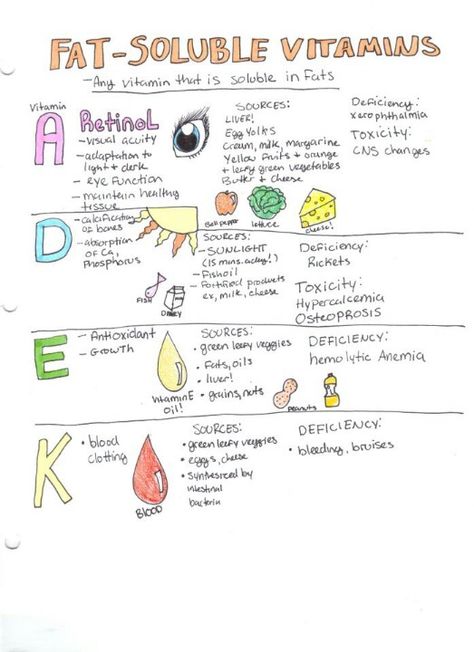 FAT-SOLUBLE VITAMINS
-Any vitamin that is soluble in fats
Vitamin
A
Retinol
- visual acuity
- adaptation to
light + dark
- eye function
- maintain healthy
tissue
SOURCES:
LIVER!
Egg Yolks
Cream, milk, margarine
Yellow fruits + orange
+ leafy green vegetables
Butter + cheese
Bell pepper
lettuce
cheese!
Deficiency:
xerophthalmia
TOXICITY:
CNS changes
D
- calcification
of bones
- absorption
of Ca,
Phosphorus
FISH
DAIRY
SOURCES:
- SUNLIGHT
(15 mins. a day!)
- Fish oil
- Fortified products
ex, milk, cheese
Deficiency:
Rickets
Toxicity:
Hypercalcemia
OSTEOPROSIS
E
- Antioxidant
- Growth
Vitamin E
oil!
SOURCES:
• green leafy veggies
• Fats, oils
• liver!
• grains, nuts
Peanuts
DEFICIENCY:
hemolytic Anemia
K
• blood
clotting
BLOOD
SOURCES:
• green leafy veggies
• eggs, cheese
• synthesized by
intestinal
bacteria
DEFICIENCY:
• bleeding, bruises